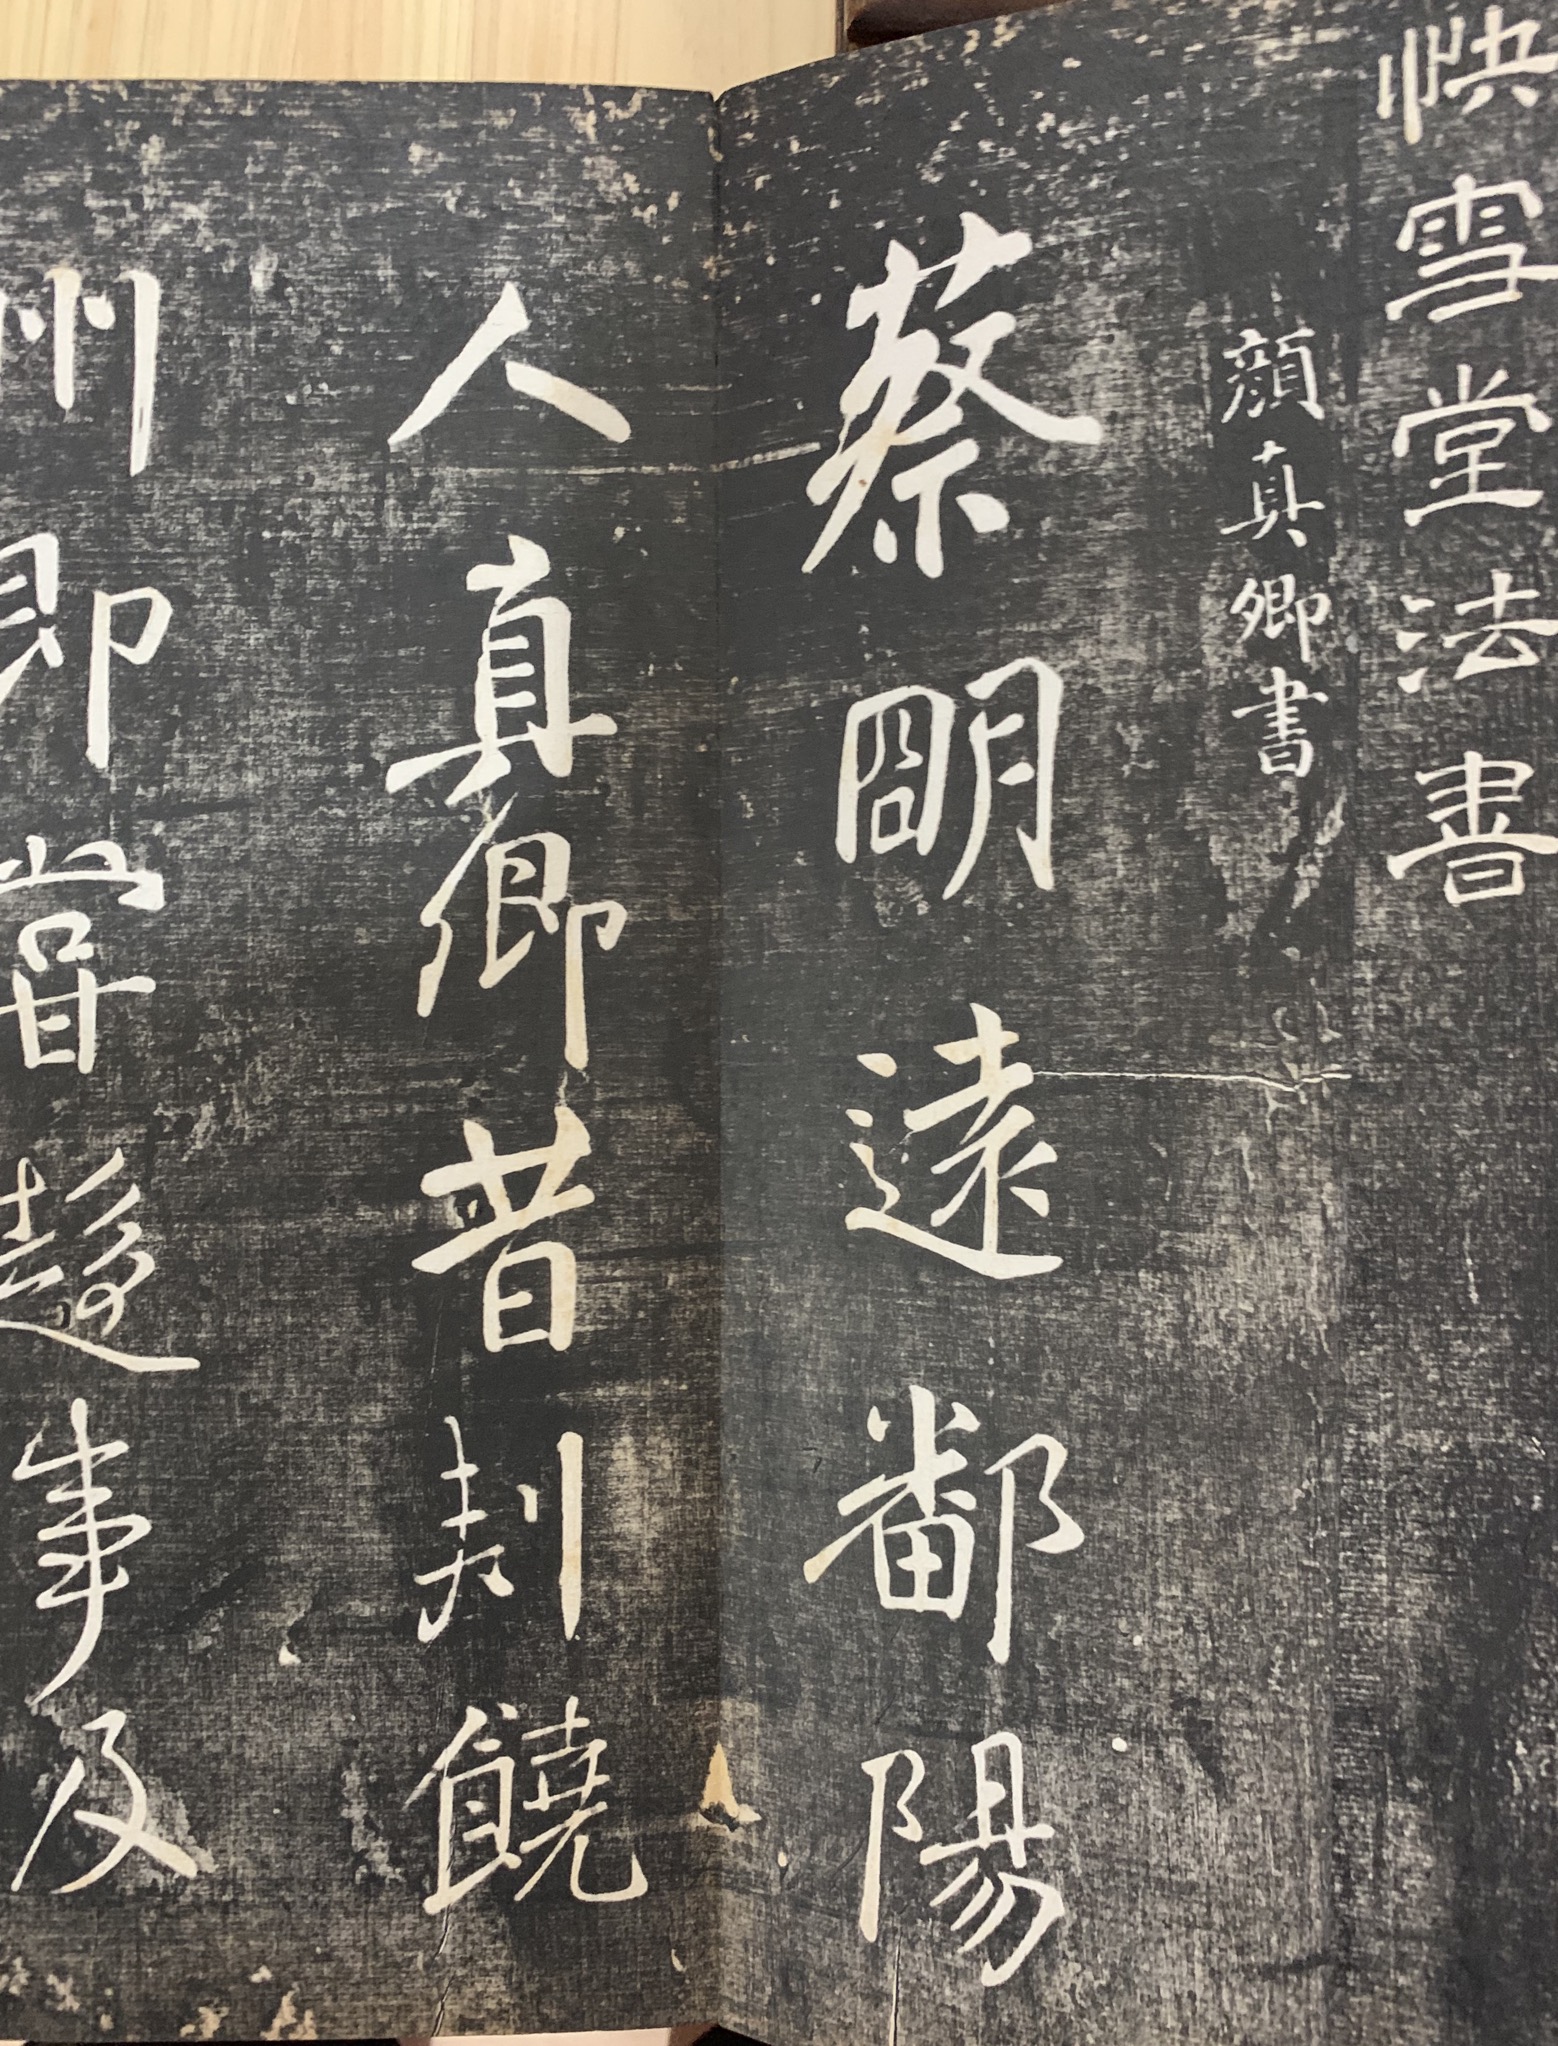 快雪堂法書
顔真卿書
蔡明遠鄱陽
人真卿昔刺饒
州即嘗趍事及